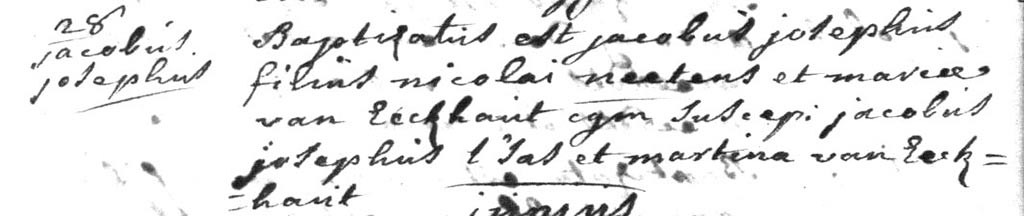 28
jacobus
josephus
Baptizatus est jacobus josephus
filius nicolai neetens et mariæ
van Eeckhaut cgm suscepi jacobus
josephus l'sas et martina van Eeck=
=haut
junius